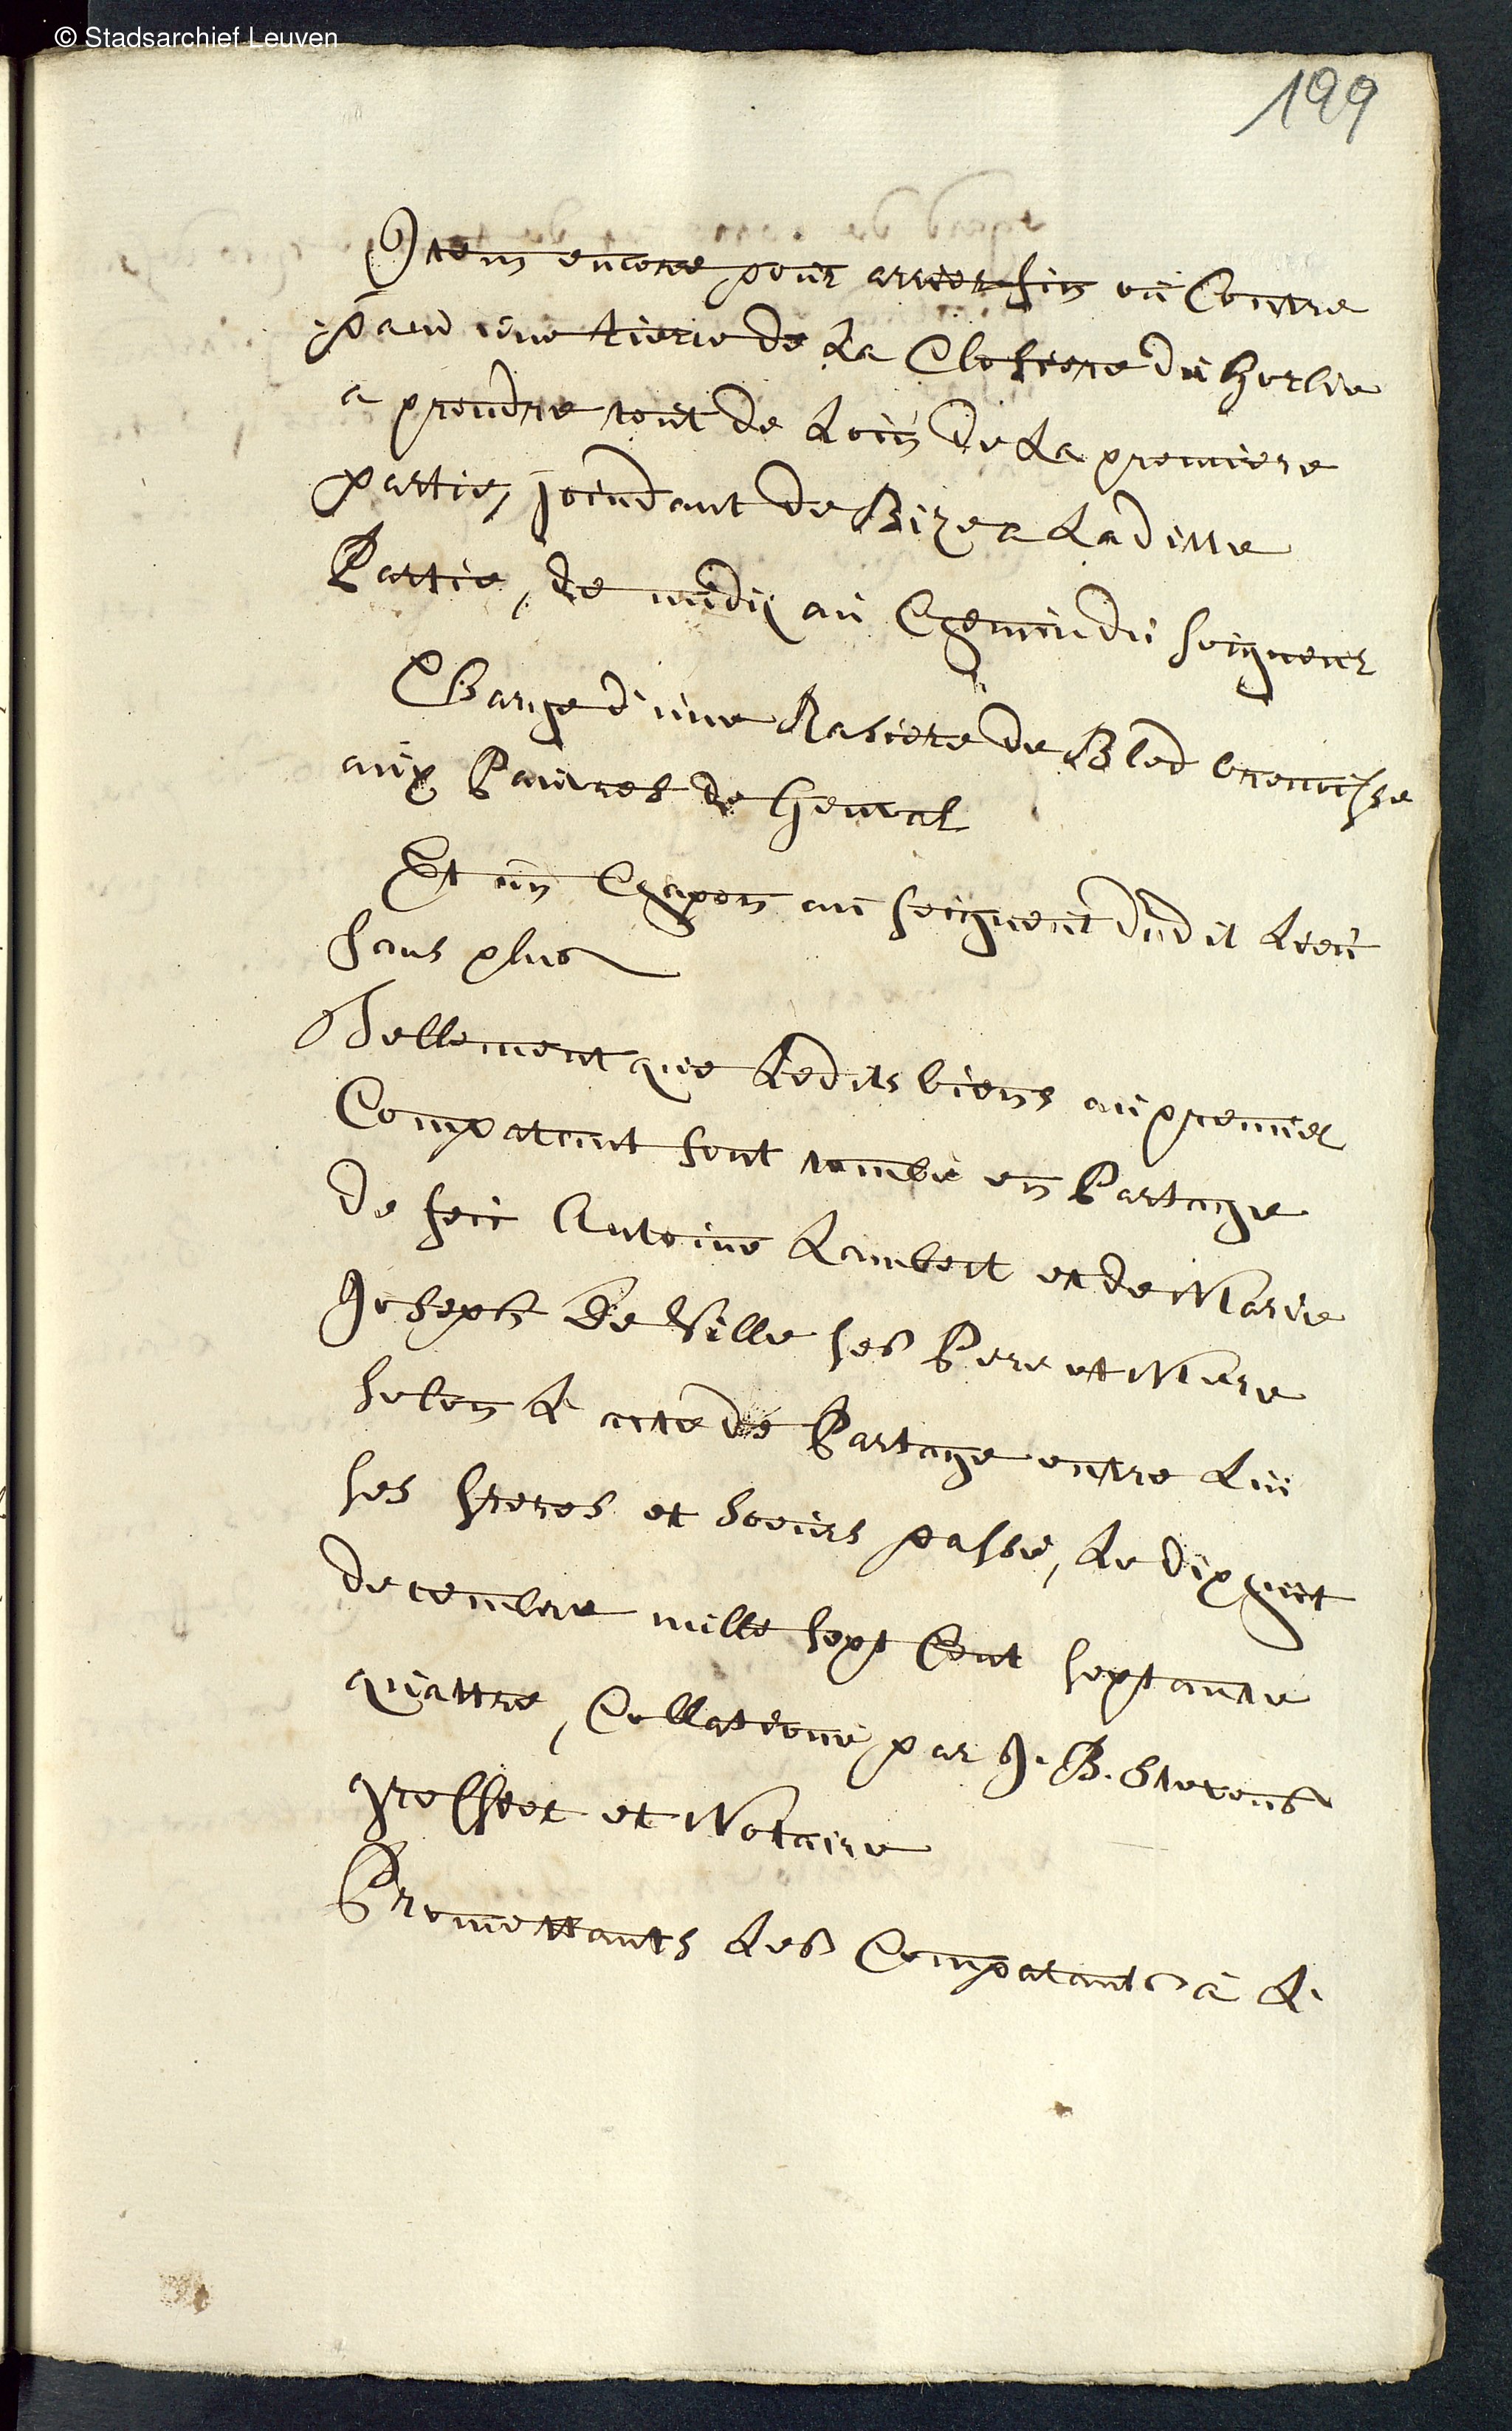 © Stadsarchief Leuven
199
Item encore pour arrierfin ou Contre
pand une tierce de La Closiere du
a prendre tout de Loin De La premiere
partie, joindant de Bize a Laditte
Partie, de midÿ au Chemin du seigneur
Charge d'une Rasiere de Bled brenoisse
aux Pauvres de Genval
Et un Chapon au seigneur dudit Lieu
sans plus
Tellement que Ledits biens au premier
Comparant sont tombé en Partage
de feu Antoine Lambert et de Marie
Joseph De Ville ses Pere et Mere
selon L'acte de Partage entre Lui
ses freres et soeurs passé, Le dixhuit
decembre mille sept Cent septante
quattre, Collationé par J. B. Stevens
greffier et Notaire
Promettants Les Comparants à L'